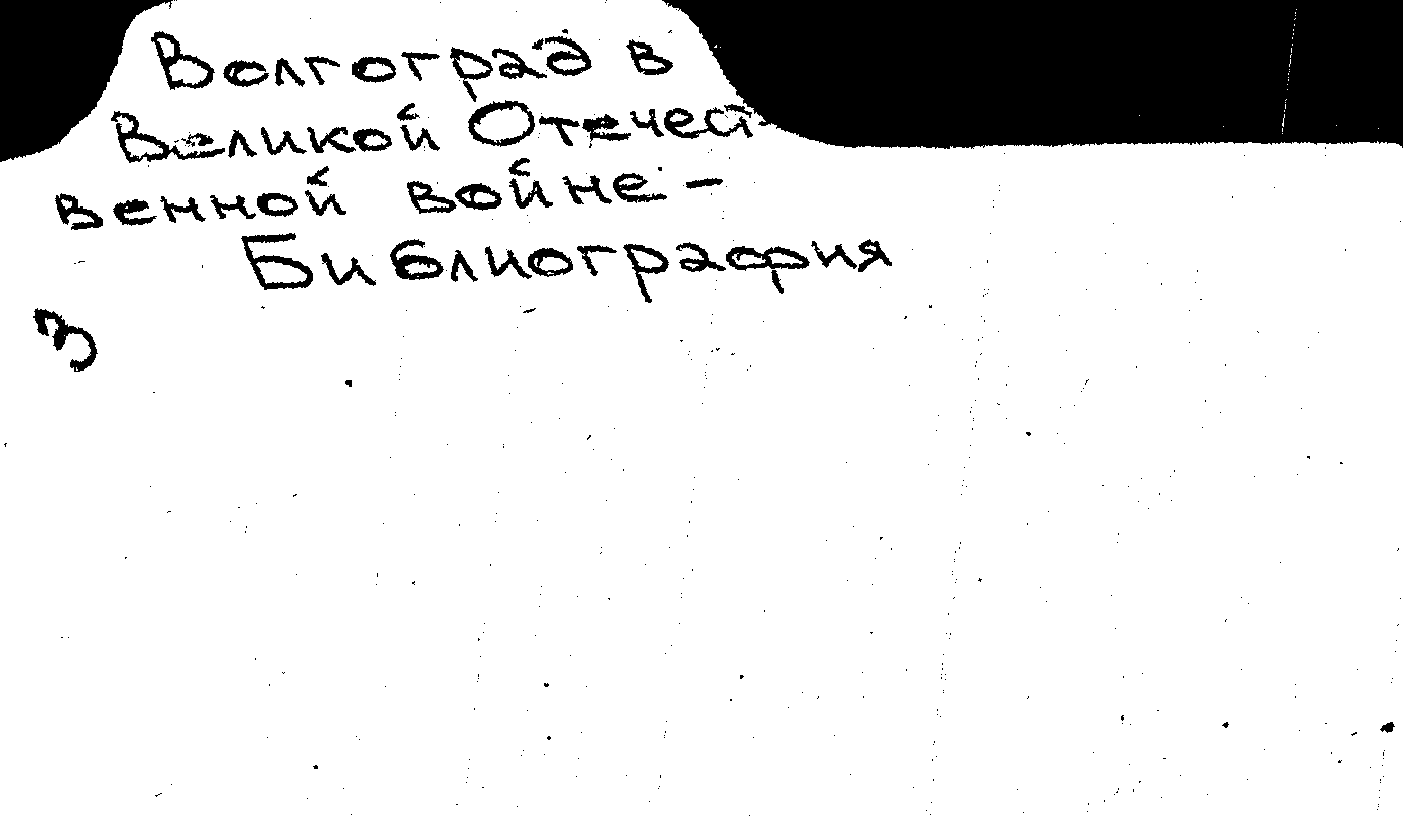 Волгоград в
Великой Отечест
венной войне -
Библиография